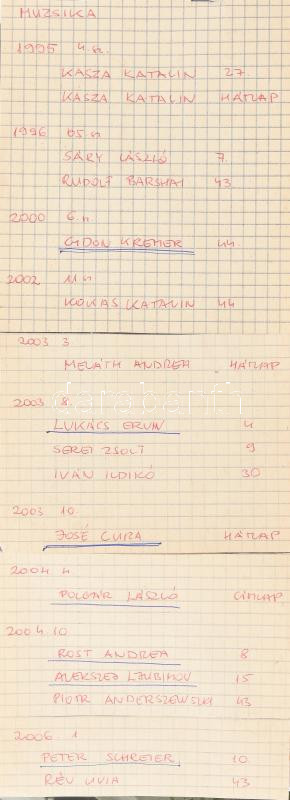 MUZSIKA
1995 4. sz.
KASZA KATALIN 27.
KASZA KATALIN HÁTLAP
1996 05. sz
SÁRY LÁSZLÓ 7.
RUDOLF BARSHAI 43
2000 6. sz.
GIDON KREMER 44.
2002 11 sz
KOKAS KATALIN 44
2003 3.
MELÁTH ANDREA HÁTLAP
2003 8.
LUKÁCS ERVIN 4
SEREI ZSOLT 9
IVÁN ILDIKÓ 30
2003 10.
JOSÉ CURA HÁTLAP
2004 4
POLGÁR LÁSZLÓ CÍMLAP
2004. 10.
ROST ANDREA 8
ALEKSZEJ LJUBIMOV 15
PIOTR ANDERSZEWSKI 43
2006. 1
PETER SCHREIER 10.
RÉV LIVIA 43